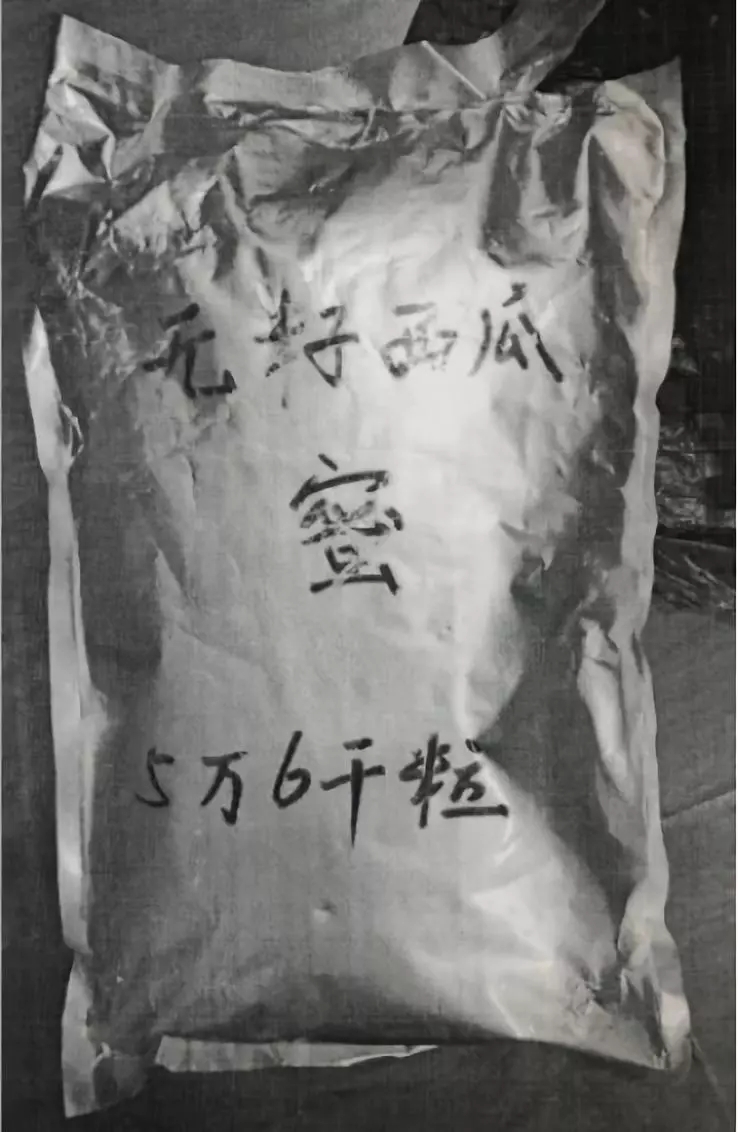 无籽西瓜
蜜
5万6千粒